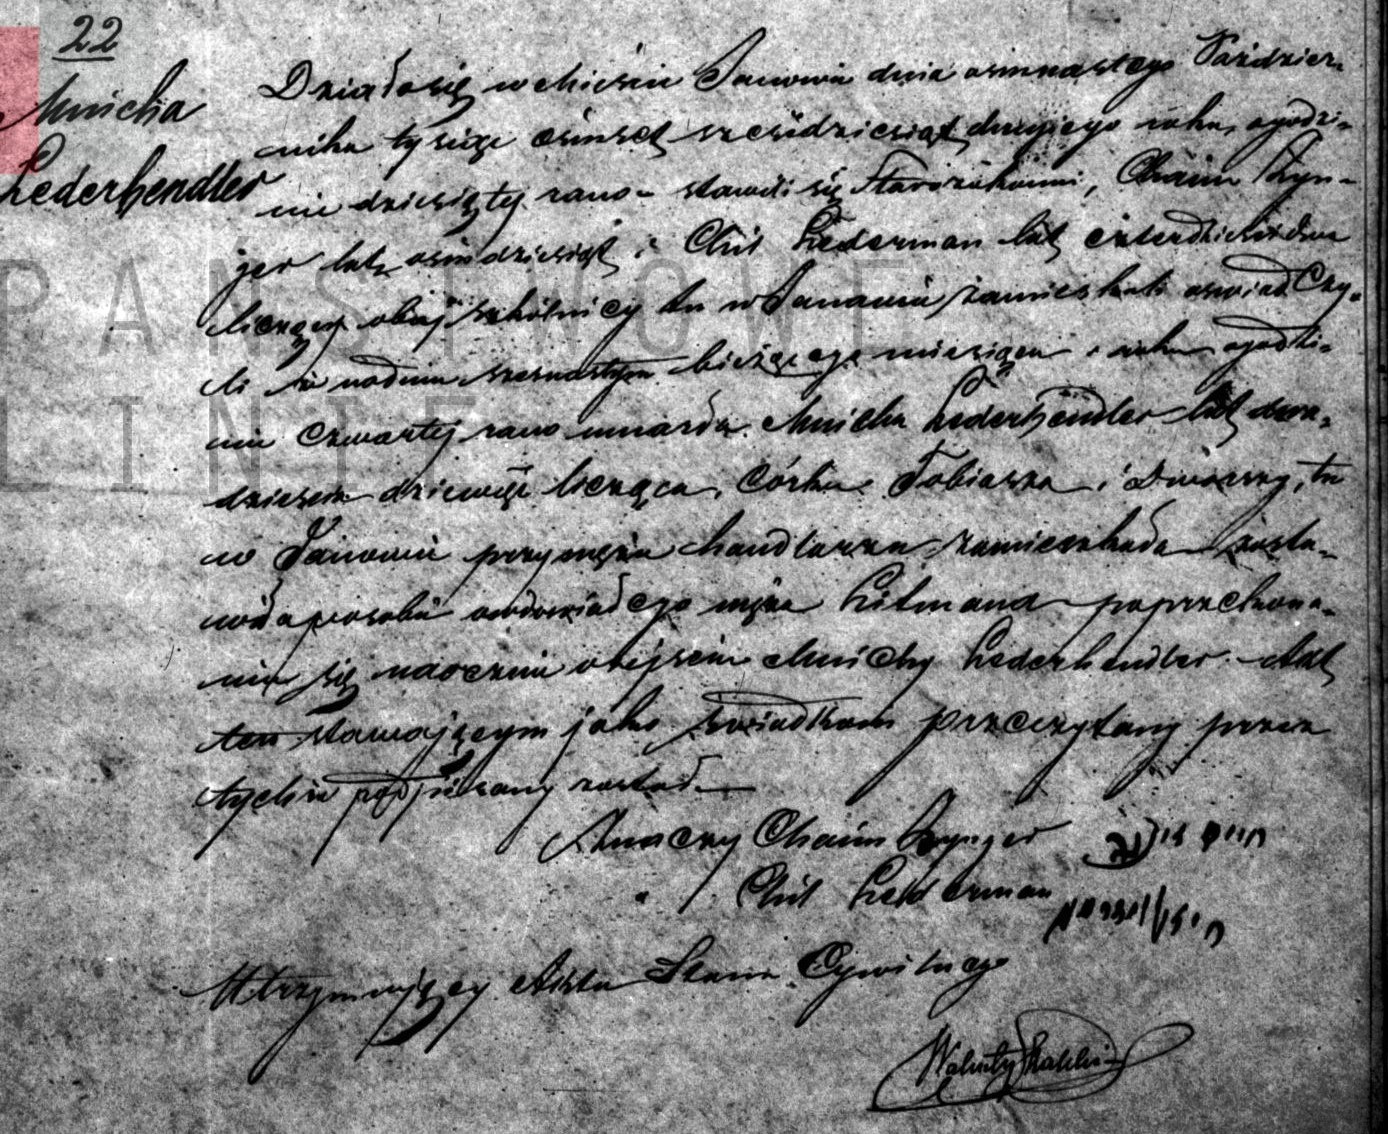 22
Mnicha
Lederhendler
Działo się w Mieście Janowie dnia osmnastego Paździer-
nika tysiąc ośmset sześćdziesiąt drugiego roku, o godzi-
nie dziesiątej rano – stawili się Starozakonni, Chaim Zyn-
ger lat ośmdziesiąt i Chil Lederman lat czterdzieści dwa
liczący obaj szkolnicy tu w Janowie zamieszkali oświadczy-
li że w dniu szesnastym bieżącego miesiąca i roku o godzi-
nie czwartej rano umarła Mnicha Lederhendler lat dwa-
dzieścia dziewięć licząca, córka Tobiasza i Dwojry, tu
w Janowie przy mężu handlarzu zamieszkała zosta-
wiła po sobie owdowiałego męża Litmana – po przekona-
niu się naocznie o zejściu Mnichy Lederhendler. Akt
ten stawającym jako świadkom przeczytany przez
tychże podpisany został. –
Znaczy Chaim Zynger חיים זינגר
" Chil Lederman
Utrzymujący Akta Stanu Cywilnego
PAŃSTWOWE
LINIE